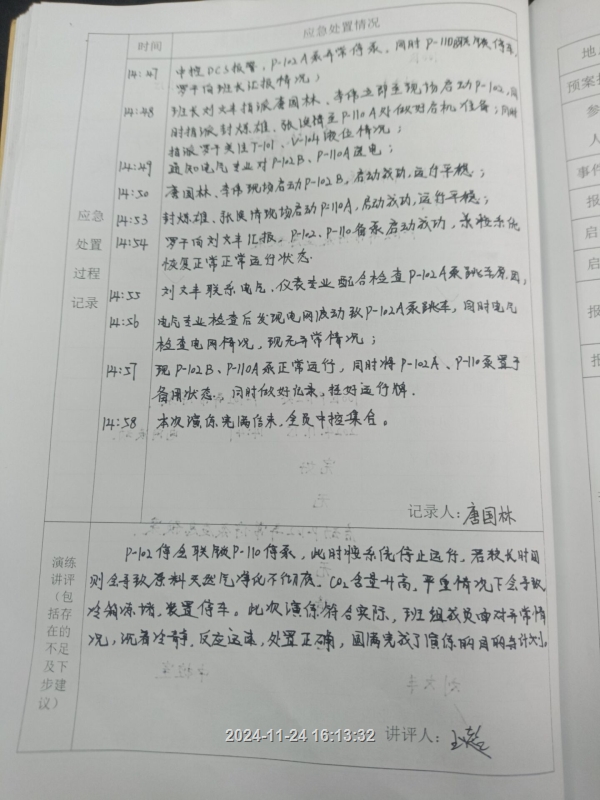 时间
应急处置情况
14:47
中控DCS报警，P-102A泵异常停泵，同时P-110联锁停车，
罗于向班长汇报情况；
14:48
班长刘文丰指派唐国林、李伟立即至现场启动P-102，同
时指派封炼雄、张至P-110A处做好启机准备；同时
指派罗于关注T-101、V-104液位情况；
14:49
通知电气专业对P-102B、P-110A送电；
14:50
唐国林、李伟现场启动P-102B，启动成功，运行平稳；
14:53
封炼雄、张现场启动P-110A，启动成功，运行平稳；
14:54
罗于向刘文丰汇报，P-102、P-110备泵启动成功，系统
恢复正常正常运行状态.
14:55
刘文丰联系电气、仪表专业配合检查P-102A泵跳车原因，
14:56
电气专业检查后发现电网波动致P-102A泵跳车，同时电气
检查电网情况，现无异常情况；
14:57
现P-102B、P-110A泵正常运行，同时将P-102A、P-110泵置于
备用状态. 同时做好记录，挂好运行牌.
14:58
本次演练完满结束，全员中控集合。
应急
处置
过程
记录
记录人：唐国林
演练
讲评
（包
括存
在的
不足
及下
步建
议）
P-102停会联锁P-110停泵，此时脱系统停止运行，若较长时间
则会导致原料天然气净化不彻底，CO₂含量升高，严重情况下会导致
冷箱冻堵，装置停车。此次演练符合实际，班组成员面对异常情
况，沉着冷静，反应迅速，处置正确，圆满完成了演练的目的与计划。
讲评人：
2024-11-24 16:13:32
地
预案
参
人
事件
报
启
启
报
报